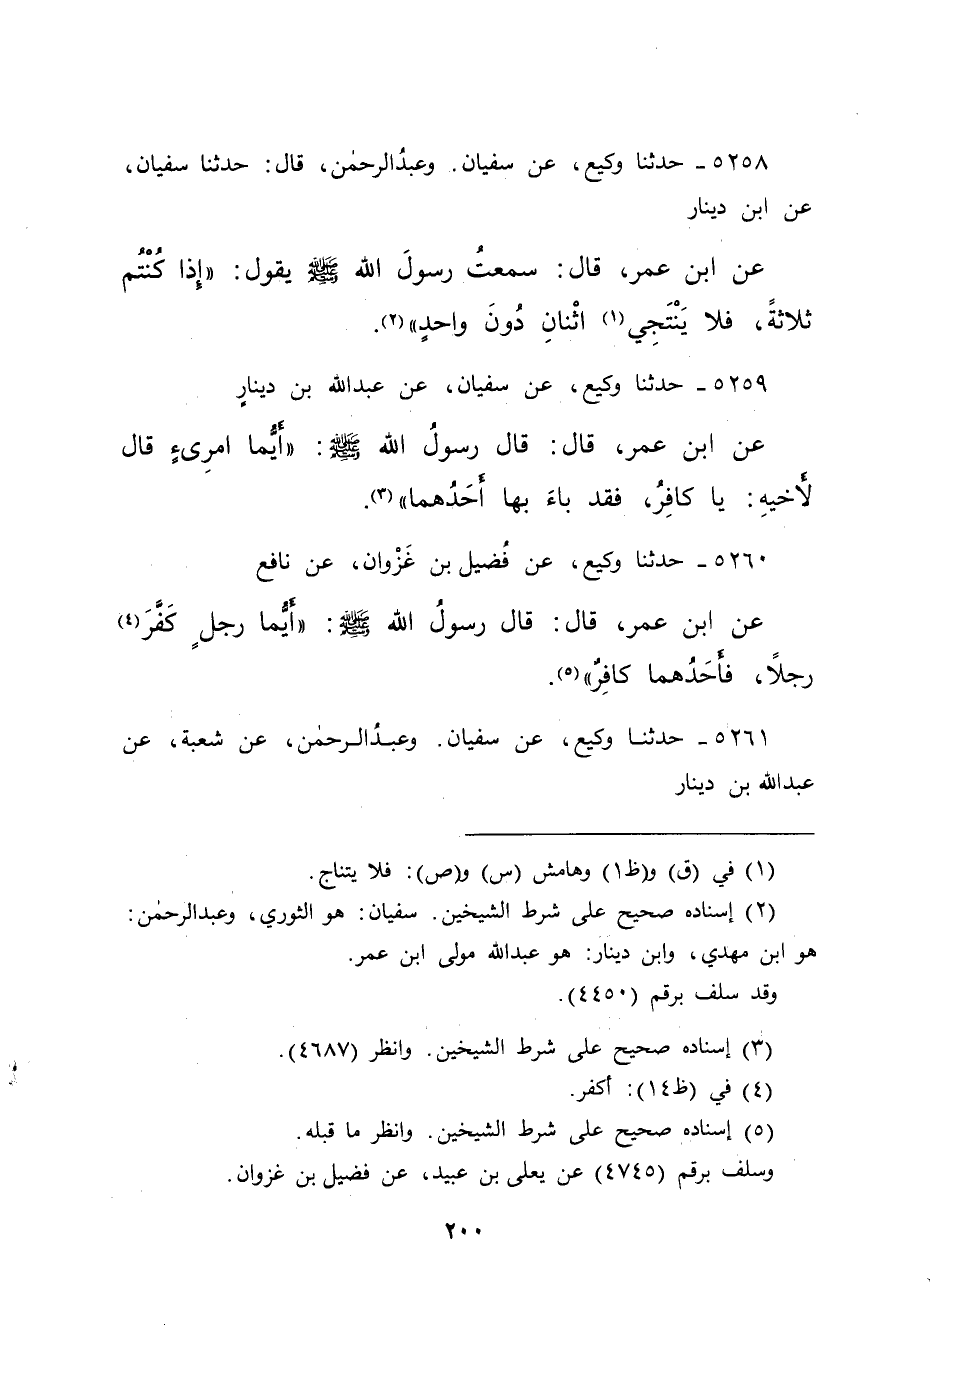 ٥٢٥٨ ـ حدثنا وكيع، عن سفيان. وعبدُالرحمٰن، قال: حدثنا سفيان،
عن ابن دينار
عن ابن عمر، قال: سمعتُ رسولَ الله ﷺ يقول: «إِذا كُنْتُم
ثلاثةً، فلا يَنْتَجِي(١) اثْنانِ دُونَ واحدٍ»(٢).
٥٢٥٩ ـ حدثنا وكيع، عن سفيان، عن عبدالله بن دينارٍ
عن ابن عمر، قال: قال رسولُ الله ﷺ: «أَيُّما امرِىءٍ قال
لأَخيهِ: يا كافِرُ، فقد باءَ بها أَحَدُهما»(٣).
٥٢٦٠ ـ حدثنا وكيع، عن فُضيل بن غَزْوان، عن نافع
عن ابن عمر، قال: قال رسولُ الله ﷺ: «أَيُّما رجلٍ كَفَّرَ(٤)
رجلاً، فأَحَدُهما كافِرٌ»(٥).
٥٢٦١ ـ حدثنـا وكيع، عن سفيان. وعبـدُالـرحمٰن، عن شعبة، عن
عبدالله بن دينار
(١) في (ق) و(ظ١) وهامش (س) و(ص): فلا يتناج.
(٢) إسناده صحيح على شرط الشيخين. سفيان: هو الثوري، وعبدالرحمٰن:
هو ابن مهدي، وابن دينار: هو عبدالله مولى ابن عمر.
وقد سلف برقم (٤٤٥٠).
(٣) إسناده صحيح على شرط الشيخين. وانظر (٤٦٨٧).
(٤) في (ظ١٤): أكفر.
(٥) إسناده صحيح على شرط الشيخين. وانظر ما قبله.
وسلف برقم (٤٧٤٥) عن يعلى بن عبيد، عن فضيل بن غزوان.
٢٠٠